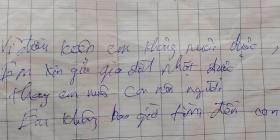 Vì điều kiện em không nuôi được,
Em xin gửi gia đình nhặt được
thay em nuôi con nên người
Em không bao giờ tìm đến con